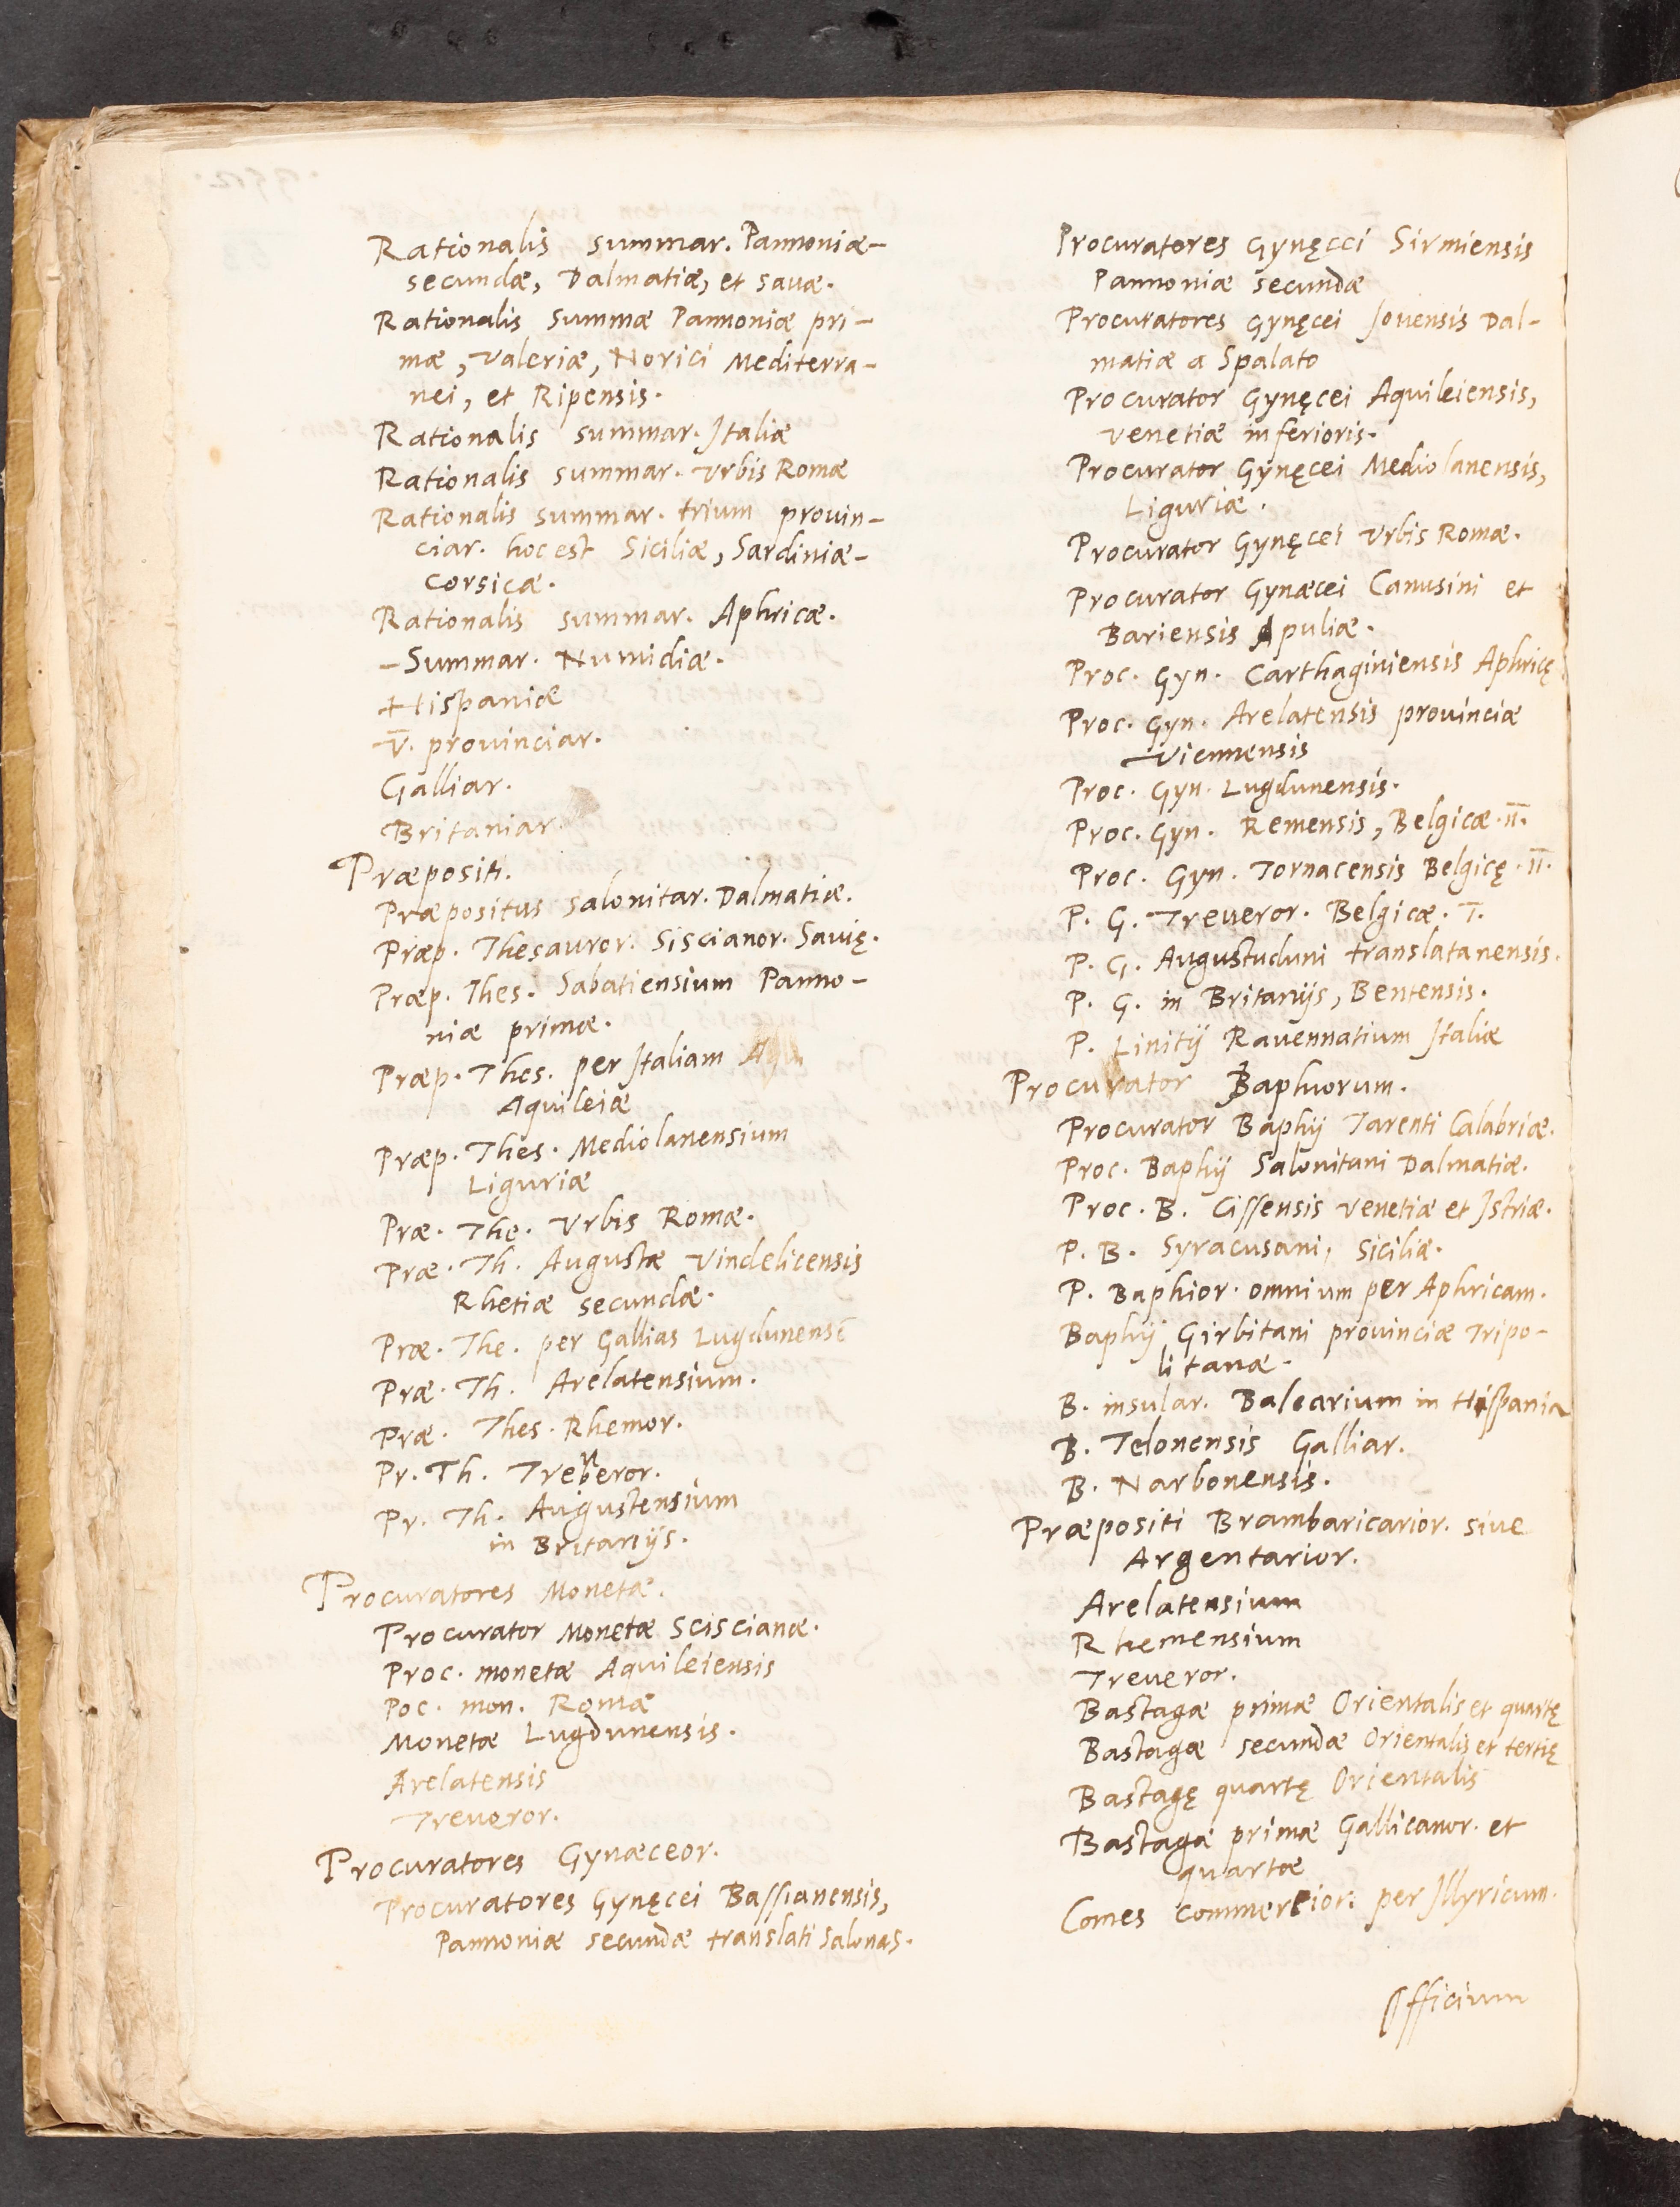 Rationalis summar. Pannoniæ-
secundæ, Dalmatiæ, et sauæ.
Rationalis summæ Pannoniæ pri-
mæ, Valeriæ, Norici Mediterra-
nei, et Ripensis.
Rationalis summar. Italiæ
Rationalis summar. Vrbis Romæ
Rationalis summar. trium prouin-
ciar. hoc est Siciliæ, Sardiniæ-
Corsicæ.
Rationalis summar. Aphricæ.
-Summar. Numidiæ.
Hispaniæ
V̅. prouinciar.
Galliar.
Britaniar.
Præpositi.
Præpositus Salonitar. Dalmatiæ.
Præp. Thesauror. Siscianor. Sauię.
Præp. Thes. Sabatiensium Panno-
niæ primæ.
Præp. Thes. per Italiam
Aquileiæ
Præp. Thes. Mediolanensium
Liguriæ
Præ. The. Vrbis Romæ.
Præ. Th. Augustæ Vindelicensis
Rhetiæ secundæ.
Præ. The. per Gallias Lugdunensē
Præ. Th. Arelatensium.
Præ. Thes. Rhemor.
Pr. Th. Treueror.
Pr. Th. Augustensium
in Britanijs.
Procuratores Monetæ.
Procurator Monetæ Sciscianæ.
Proc. monetæ Aquileiensis
Poc. mon. Romæ
Monetæ Lugdunensis.
Arelatensis
Treueror.
Procuratores Gynæceor.
Procuratores Gynęcei Bassianensis,
Pannoniæ secundæ translati Salonas.
Procuratores Gynęcei Sirmiensis
Pannoniæ secundæ
Procuratores Gynęcei Jouensis Dal-
matiæ a Spalato
Procurator Gynęcei Aquileiensis,
Venetiæ inferioris.
Procurator Gynęcei Mediolanensis,
Liguriæ.
Procurator Gynęcei Vrbis Romæ.
Procurator Gynæcei Canusini et
Bariensis Apuliæ.
Proc. Gyn. Carthaginiensis Aphricę
Proc. Gyn. Arelatensis prouinciæ
Viennensis
Proc. Gyn. Lugdunensis.
Proc. Gyn. Remensis, Belgicæ. II.
Proc. Gyn. Tornacensis Belgicę. II.
P. G. Treueror. Belgicæ. I.
P. G. Augustuduni translatanensis.
P. G. in Britanijs, Bentensis.
P. Linitij Rauennatium Italiæ
Procurator Baphiorum.
Procurator Baphij Tarenti Calabriæ.
Proc. Baphij Salonitani Dalmatiæ.
Proc. B. Cissensis Venetiæ et Istriæ.
P. B. Syracusani, Siciliæ.
P. Baphior. omnium per Aphricam.
Baphij Girbitani prouinciæ Tripo-
litanæ.
B. insular. Balearium in Hispania
B. Telonensis Galliar.
B. Narbonensis.
Præpositi Brambaricarior. siue
Argentarior.
Arelatensium
Rhemensium
Treueror.
Bastagæ primæ Orientalis et quartę
Bastagæ secundæ Orientalis et tertię
Bastagę quartę Orientalis
Bastagæ primæ Gallicanor. et
quartæ
Comes commercior. per Illyricum.
Officium